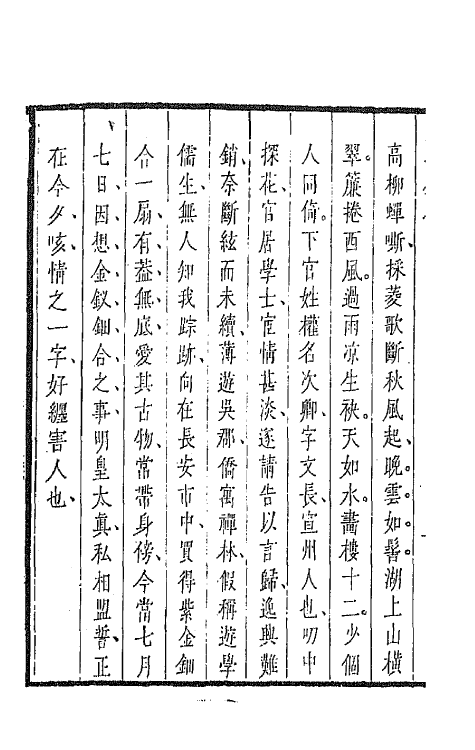 高柳蟬嘶採菱歌斷秋風起晚雲如髻湖上山橫
翠簾捲西風過雨凉生袂天如水畵樓十二少個
人同倚下官姓權名次卿字文長宣州人也叨中
探花官居學士宦情甚淡遂請告以言歸逸興難
銷奈斷絃而未續薄遊吳郡僑寓禪林假稱遊學
儒生無人知我踪跡向在長安市中買得紫金鈿
合一扇有葢無底愛其古物常帶身傍今當七月
七日因想金釵鈿合之事明皇太真私相盟誓正
在今夕咳情之一字好纒害人也